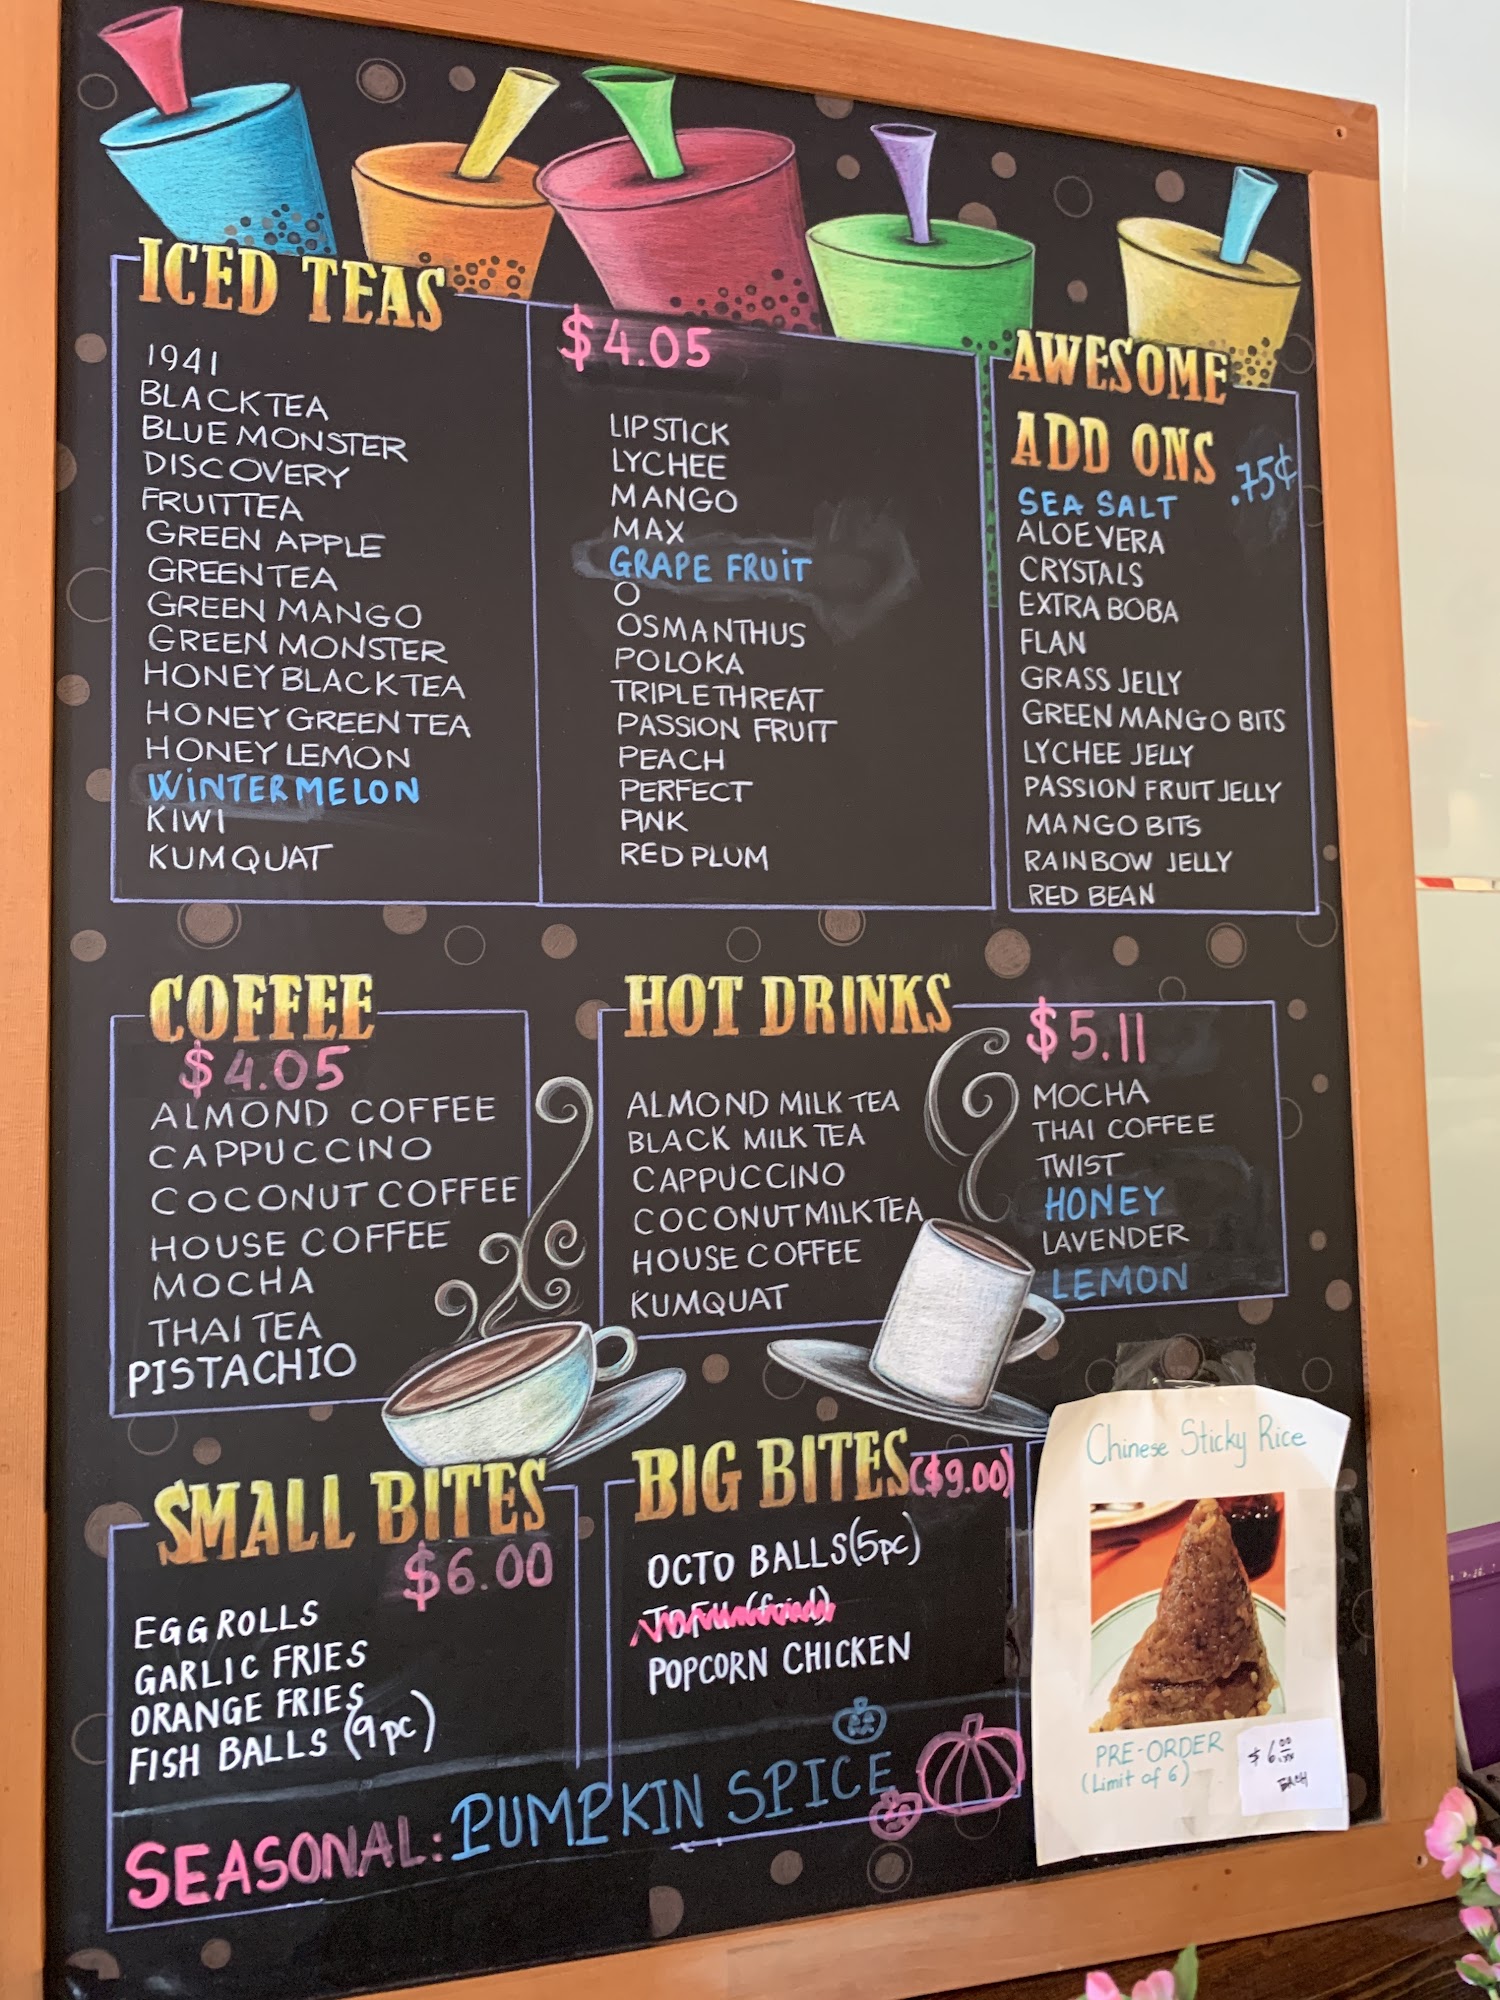 ICED TEAS
1941
BLACK TEA
BLUE MONSTER
DISCOVERY
FRUIT TEA
GREEN APPLE
GREEN TEA
GREEN MANGO
GREEN MONSTER
HONEY BLACK TEA
HONEY GREEN TEA
HONEY LEMON
WiNTERMELON
KIWI
KUMQUAT
$4.05
LIPSTICK
LYCHEE
MANGO
MAX
GRAPE FRUiT
O
OSMANTHUS
POLOKA
TRIPLE THREAT
PASSION FRUIT
PEACH
PERFECT
PINK
RED PLUM
AWESOME
ADD ONS
.75¢
SEA SALT
ALOE VERA
CRYSTALS
EXTRA BOBA
FLAN
GRASS JELLY
GREEN MANGO BITS
LYCHEE JELLY
PASSION FRUIT JELLY
MANGO BITS
RAINBOW JELLY
RED BEAN
COFFEE
$4.05
ALMOND COFFEE
CAPPUCCINO
COCONUT COFFEE
HOUSE COFFEE
MOCHA
THAI TEA
PISTACHIO
HOT DRINKS
$5.11
ALMOND MILK TEA
BLACK MILK TEA
CAPPUCCINO
COCONUT MILK TEA
HOUSE COFFEE
KUMQUAT
MOCHA
THAI COFFEE
TWIST
HONEY
LAVENDER
LEMON
SMALL BITES
$6.00
EGG ROLLS
GARLIC FRIES
ORANGE FRIES
FISH BALLS (9pc)
BIG BITES ($9.00)
OCTO BALLS (5pc)
TOFU (fried)
POPCORN CHICKEN
SEASONAL: PUMPKIN SPICE
Chinese Sticky Rice
PRE-ORDER
(Limit of 6)
$6.00
EACH